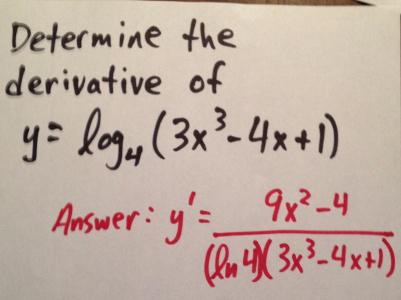 Determine the
derivative of
y = log₄ (3x³-4x+1)
Answer: y' = 9x²-4 / (ln 4)(3x³-4x+1)